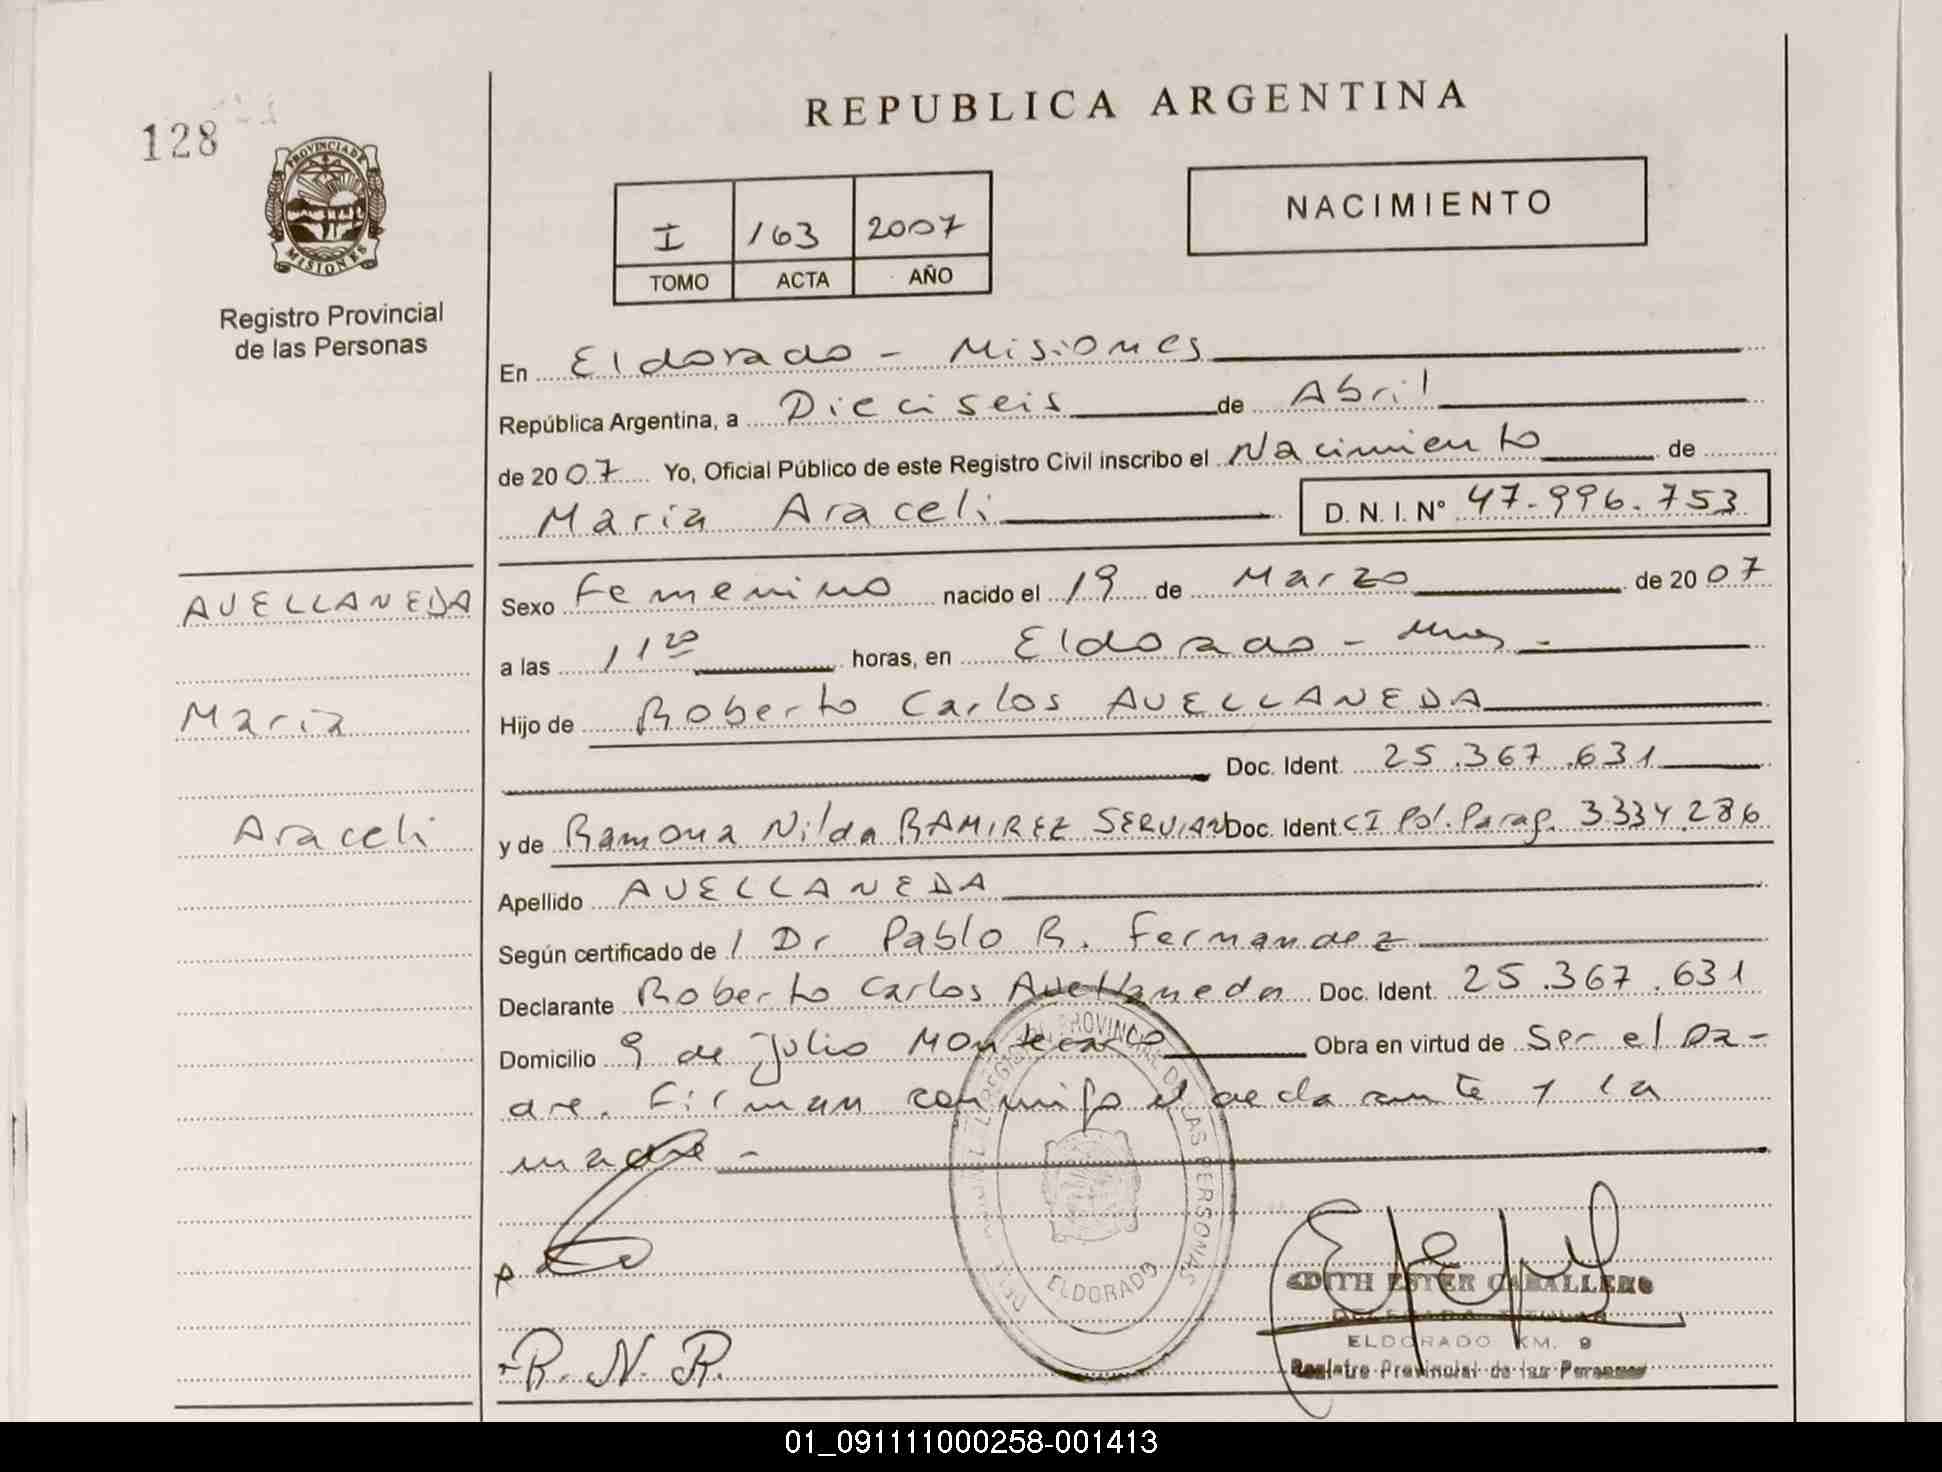 128
PROVINCIA DE
MISIONES
Registro Provincial
de las Personas
REPUBLICA ARGENTINA
I 163 2007
TOMO ACTA AÑO
NACIMIENTO
En Eldorado - Misiones
República Argentina, a Dieciseis de Abril
de 2007 Yo, Oficial Público de este Registro Civil inscribo el Nacimiento de
Maria Araceli D. N. I. Nº 47.996.753
AVELLANEDA
Maria
Araceli
Sexo Femenino nacido el 19 de Marzo de 2007
a las 11 20 horas, en Eldorado - Mnes -
Hijo de Roberto Carlos AVELLANEDA
Doc. Ident. 25.367.631
y de Ramona Nilda RAMIREZ SERVIAN Doc. Ident. CI Pol. Parag. 3334.286
Apellido AVELLANEDA
Según certificado de / Dr Pablo R. Fernandez
Declarante Roberto Carlos Avellaneda Doc. Ident. 25.367.631
Domicilio 9 de Julio Montecarlo Obra en virtud de Ser el Pa-
dre. Firman conmigo el declarante y la
madre -
REGISTRO PROVINCIAL DE LAS PERSONAS
ELDORADO
R. N. R.
EDITH ESTER CABALLERO
DELEGADA TITULAR
ELDORADO KM. 9
Registro Provincial de las Personas
01_091111000258-001413